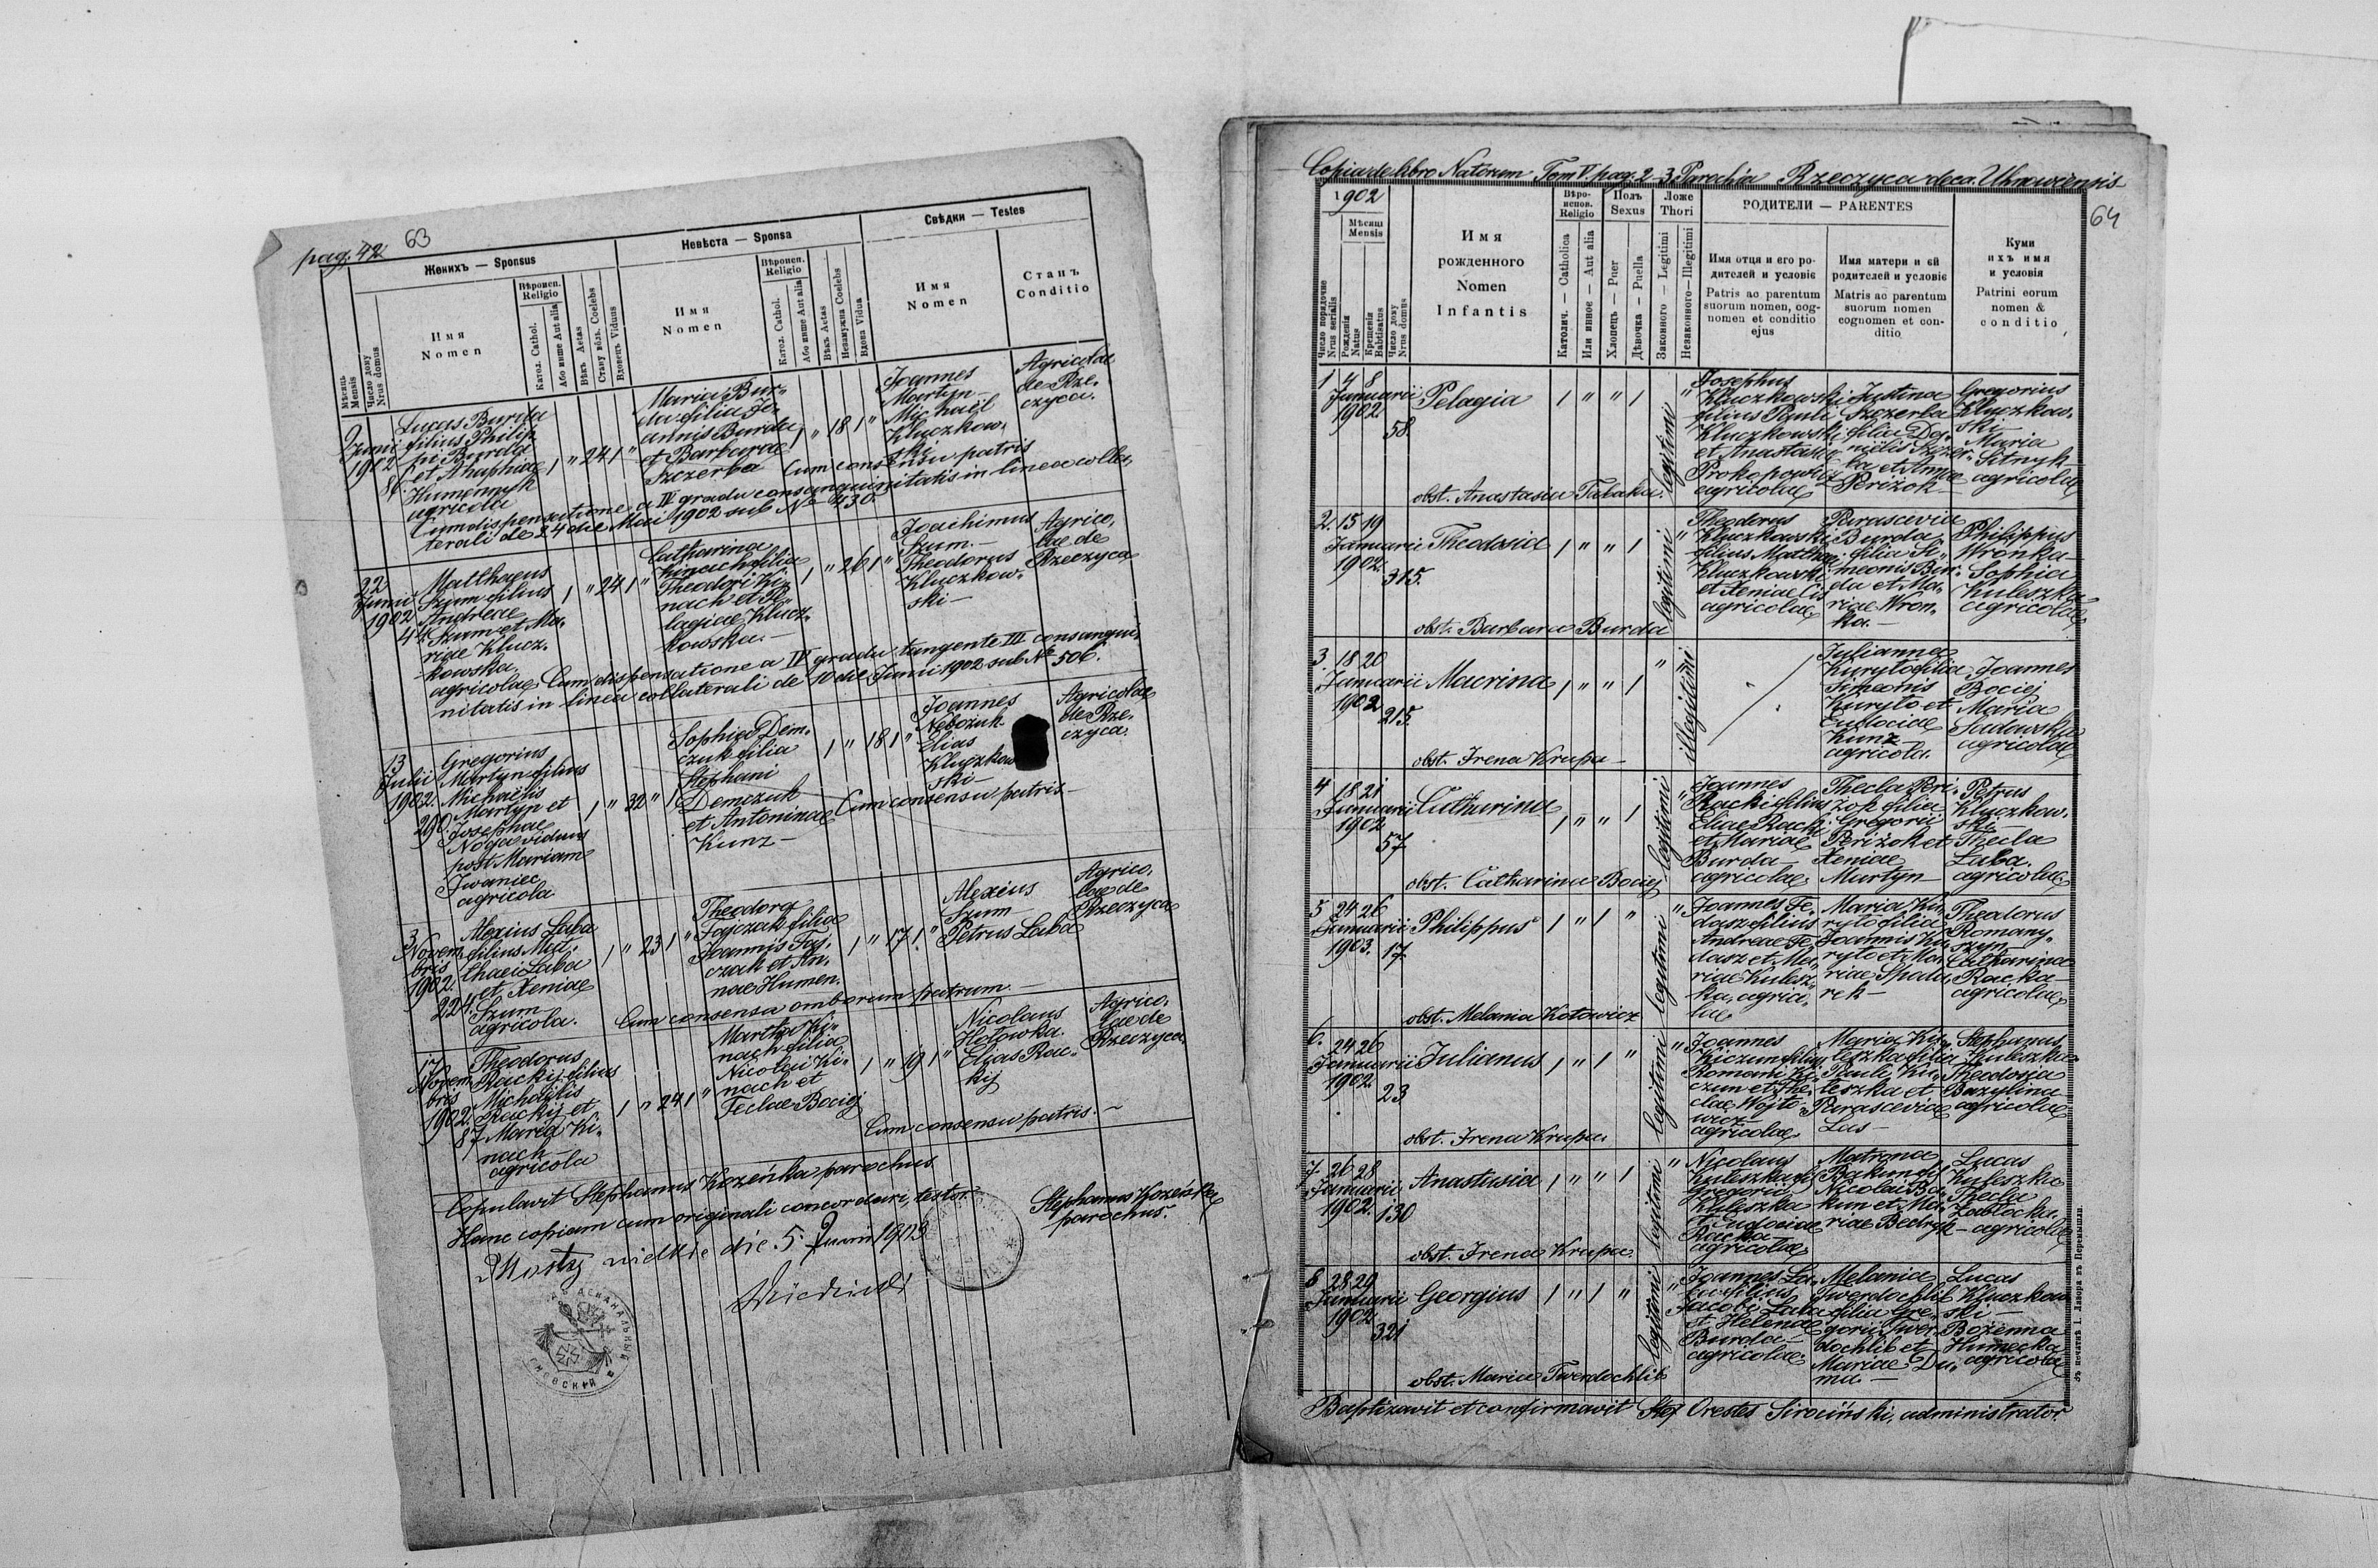 pag. 42
63
Женихъ — Sponsus
Невѣста — Sponsa
Свѣдки — Testes
Мѣсяць Mensis
Число дому Nrus domus
Имя
Nomen
Вѣроисп.
Religio
Катол. Cathol.
Або инше Aut alia
Вѣкъ Aetas
Стану вôльн. Coelebs
Вдовець Viduus
Имя
Nomen
Вѣроисп.
Religio
Катол. Cathol.
Або инше Aut alia
Вѣкъ Aetas
Незамужна Coelebs
Вдова Vidua
Имя
Nomen
Станъ
Conditio
Junii
1902
Lucas Burda
filius Philip
pi Burda
et Ahaphiae
Humennyk
agricola
1 " 24 1 "
Maria Bur-
da filia Jo-
annis Burda
et Barbarae
Szczerba
1 " 18 1 "
Joannes
Martyn
Michaël
Kluczkow-
ski
Agricolae
de Rze-
czyca.
Cum consensu patris
Cum dispensatione a IV gradu consanguinitatis in linea colla-
terali de 24 die Maii 1902 sub № 430.
22
Junii
1902
44
Matthaeus
Szum filius
Andreae
Szum et Ma-
riae Klucz-
kowska.
agricolae
1 " 24 1 "
Catharina
Kinach filia
Theodori Ki-
nach et Pe-
lagiae Klucz-
kowska.—
1 " 26 1 "
Joachimus
Szum.—
Theodorus
Kluczkow-
ski—
Agrico-
lae de
Rzeczyca
Cum dispensatione a IV gradu tangente III consangui-
nitatis in linea collaterali de 10 die Junii 1902 sub № 506.
13
Julii
1902.
290.
Gregorius
Martyn filius
Michaëlis
Martyn et
Josephae
Noga viduus
post Mariam
Iwaniec
agricola
1 " 32 " 1
Sophia Dem-
czuk filia
Stephani
Demczuk
et Antoninae
Kunz—
1 " 18 1 "
Joannes
Nebożuk
Elias
Kluczkow
ski—
Agricolae
de Rze-
czyca.
Cum consensu patris—
3
Novem-
bris
1902.
224.
Alexius Laba
filius Mat-
thaei Laba
et Xeniae
Szum
agricola.
1 " 23 1 "
Theodora
Fajczak filia
Joannis Faj-
czak et An-
nae Humen.
1 " 17 1 "
Alexius
Szum
Petrus Laba
Agrico-
lae de
Rzeczyca
Cum consensu amborum patrum.—
17
Novem-
bris
1902.
87
Theodorus
Rackij filius
Michaëlis
Rackij et
Maria Ki-
nach
agricola
1 " 24 1 "
Martha Ki-
nach filia
Nicolai Ki-
nach et
Teclae Bociej
1 " 19 1 "
Nicolaus
Hotowka.
Elias Rac-
kij
Agrico-
lae de
Rzeczyca.
Cum consensu patris.—
Copulavit Stephanus Kozeńka parochus
Hanc copiam cum originali concordari, testor.
Stephanus Kozeńka
parochus.
Mosty wielkie die 5 Junii 1903
Copia de libro Natorum Tom V. pag. 2-3 Parochia Rzeczyca deca. Uhnowiensis—
64
1902
Мѣсяць
Mensis
Число порядочне Nrus serialis
Рожденія Natus
Крещенія Babtisatus
Число дому Nrus domus
Имя
рожденного
Nomen
Infantis
Вѣро-
испов.
Religio
Католич. — Catholica
Или инное — Aut alia
Полъ
Sexus
Хлопець — Puer
Дѣвочка — Puella
Ложе
Thori
Законного — Legitimi
Незаконного—Illegitimi
РОДИТЕЛИ — PARENTES
Имя отця и его ро-
дителей и условіе
Patris ac parentum
suorum nomen, cog-
nomen et conditio
ejus
Имя матери и єй
родителей и условіе
Matris ac parentum
suorum nomen
cognomen et con-
ditio
Куми
ихъ имя
и условія
Patrini eorum
nomen &
conditio
1 4 8
Januarii
1902
58.
Pelagia
1 " " 1
legitimi
"
Josephus
Kluczkowski
filius Pauli
Kluczkowski
et Anastasiae
Prokopowicz
agricolae
Justina
Szczerba
filia Da-
nielis Szczer-
ba et Annae
Periżok—
Gregorius
Kluczkow-
ski—
Maria
Sitnyk—
agricolae
obst. Anastasia Tabaka.
2. 15 19
Januarii
1902.
315.
Theodosia
1 " " 1
legitimi
"
Theodorus
Kluczkowski
filius Matthaei
Kluczkowski
et Xeniae Lis
agricolae
Parascevia
Burda
filia Si-
meonis Bur-
da et Ma-
riae Wron-
ka.—
Philippus
Wronka—
Sophia
Kuleszka
agricolae
obst. Barbara Burda
3. 18 20
Januarii
1902
215.
Macrina
1 " " 1
"
illegitimi
Julianna
Kuryto filia
Simeonis
Kuryto et
Eudociae
Kunz
agricola.
Joannes
Bociej
Maria
Sadowska
agricolae
obst. Irena Krupa—
4 18 21
Januarii
1902
57
Catharina
1 " " 1
legitimi
"
Joannes
Racki filius
Eliae Racki
et Mariae
Burda—
agricolae
Thecla Peri-
żok filia
Gregorii
Periżok et
Xeniae
Martyn—
Petrus
Kluczkow-
ski—
Thecla
Laba.
agricolae
obst. Catharina Bociej
5 24 26
Januarii
1903.
17
Philippus
1 " 1 "
legitimi
"
Joannes Fe-
dasz filius
Andreae Fe-
dasz et Ma-
riae Kulesz-
ka, agrico-
lae
Maria Ku-
ryto filia
Joannis Ku-
ryto et Ma-
riae Spada-
rek—
Theodorus
Romany-
szyn
Catharina
Racka—
agricolae
obst. Melania Kotowicz
6. 24 26
Januarii
1902
23
Julianus
1 " 1 "
legitimi
"
Joannes
Kiczun filius
Romani Ki-
czun et The-
clae Wojto-
wicz
agricolae
Maria Ku-
leszka filia
Pauli Ku-
leszka et
Parasceviae
Lus—
Stephanus
Kuleszka
Theodosia
Bazylina
agricolae
obst. Irena Krupa.
7. 26 28
Januarii
1902.
130
Anastasia
1 " " 1
legitimi
"
Nicolaus
Kuleszka fil.
Gregorii
Kuleszka
et Eudociae
Racka—
agricolae
Matrona
Bakun fil.
Nicolai Ba-
kun et Ma-
riae Bedryk—
Lucas
Kuleszka
Thecla
Zablocka.
agricolae
obst. Irena Krupa.
8 28 29
Januarii
1902
321
Georgius
1 " 1 "
legitimi
"
Joannes La-
ba filius
Jacobi Laba
et Helenae
Burda—
agricolae
Melania
Twerdochlib
filia Gre-
gorii Twer-
dochlib et
Mariae Du-
ma.—
Lucas
Kluczkow
ski—
Bożenna
Humecka
agricolae
obst. Maria Twerdochlib
Baptizavit et confirmavit Stef Orestes Sirociński, administrator